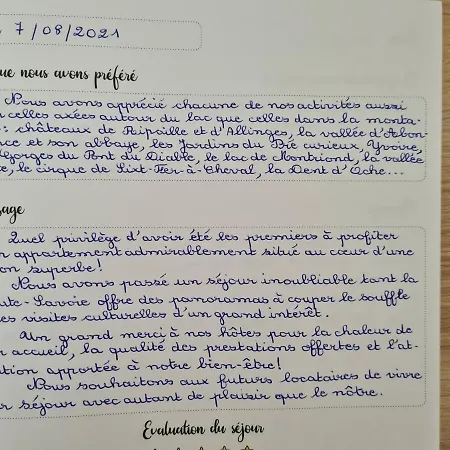 7/08/2021
ue nous avons préféré
Nous avons apprécié chacune de nos activités aussi
celles axées autour du lac que celles dans la monta-
: châteaux de Ripaille et d'Allinges, la vallée d'Abon-
ce et son abbaye, les Jardins du Pré curieux, Yvoire,
gorges du Pont du Diable, le lac de Montriond, la vallée
e, le cirque de Sixt-Fer-à-Cheval, la Dent d'Oche...
sage
Quel privilège d'avoir été les premiers à profiter
n appartement admirablement situé au cœur d'une
on superbe!
Nous avons passé un séjour inoubliable tant la
ute-Savoie offre des panoramas à couper le souffle
es visites culturelles d'un grand intérêt.
Un grand merci à nos hôtes pour la chaleur de
r accueil, la qualité des prestations offertes et l'at-
tion apportée à notre bien-être!
Nous souhaitons aux futurs locataires de vivre
r séjour avec autant de plaisir que le nôtre.
Evaluation du séjour